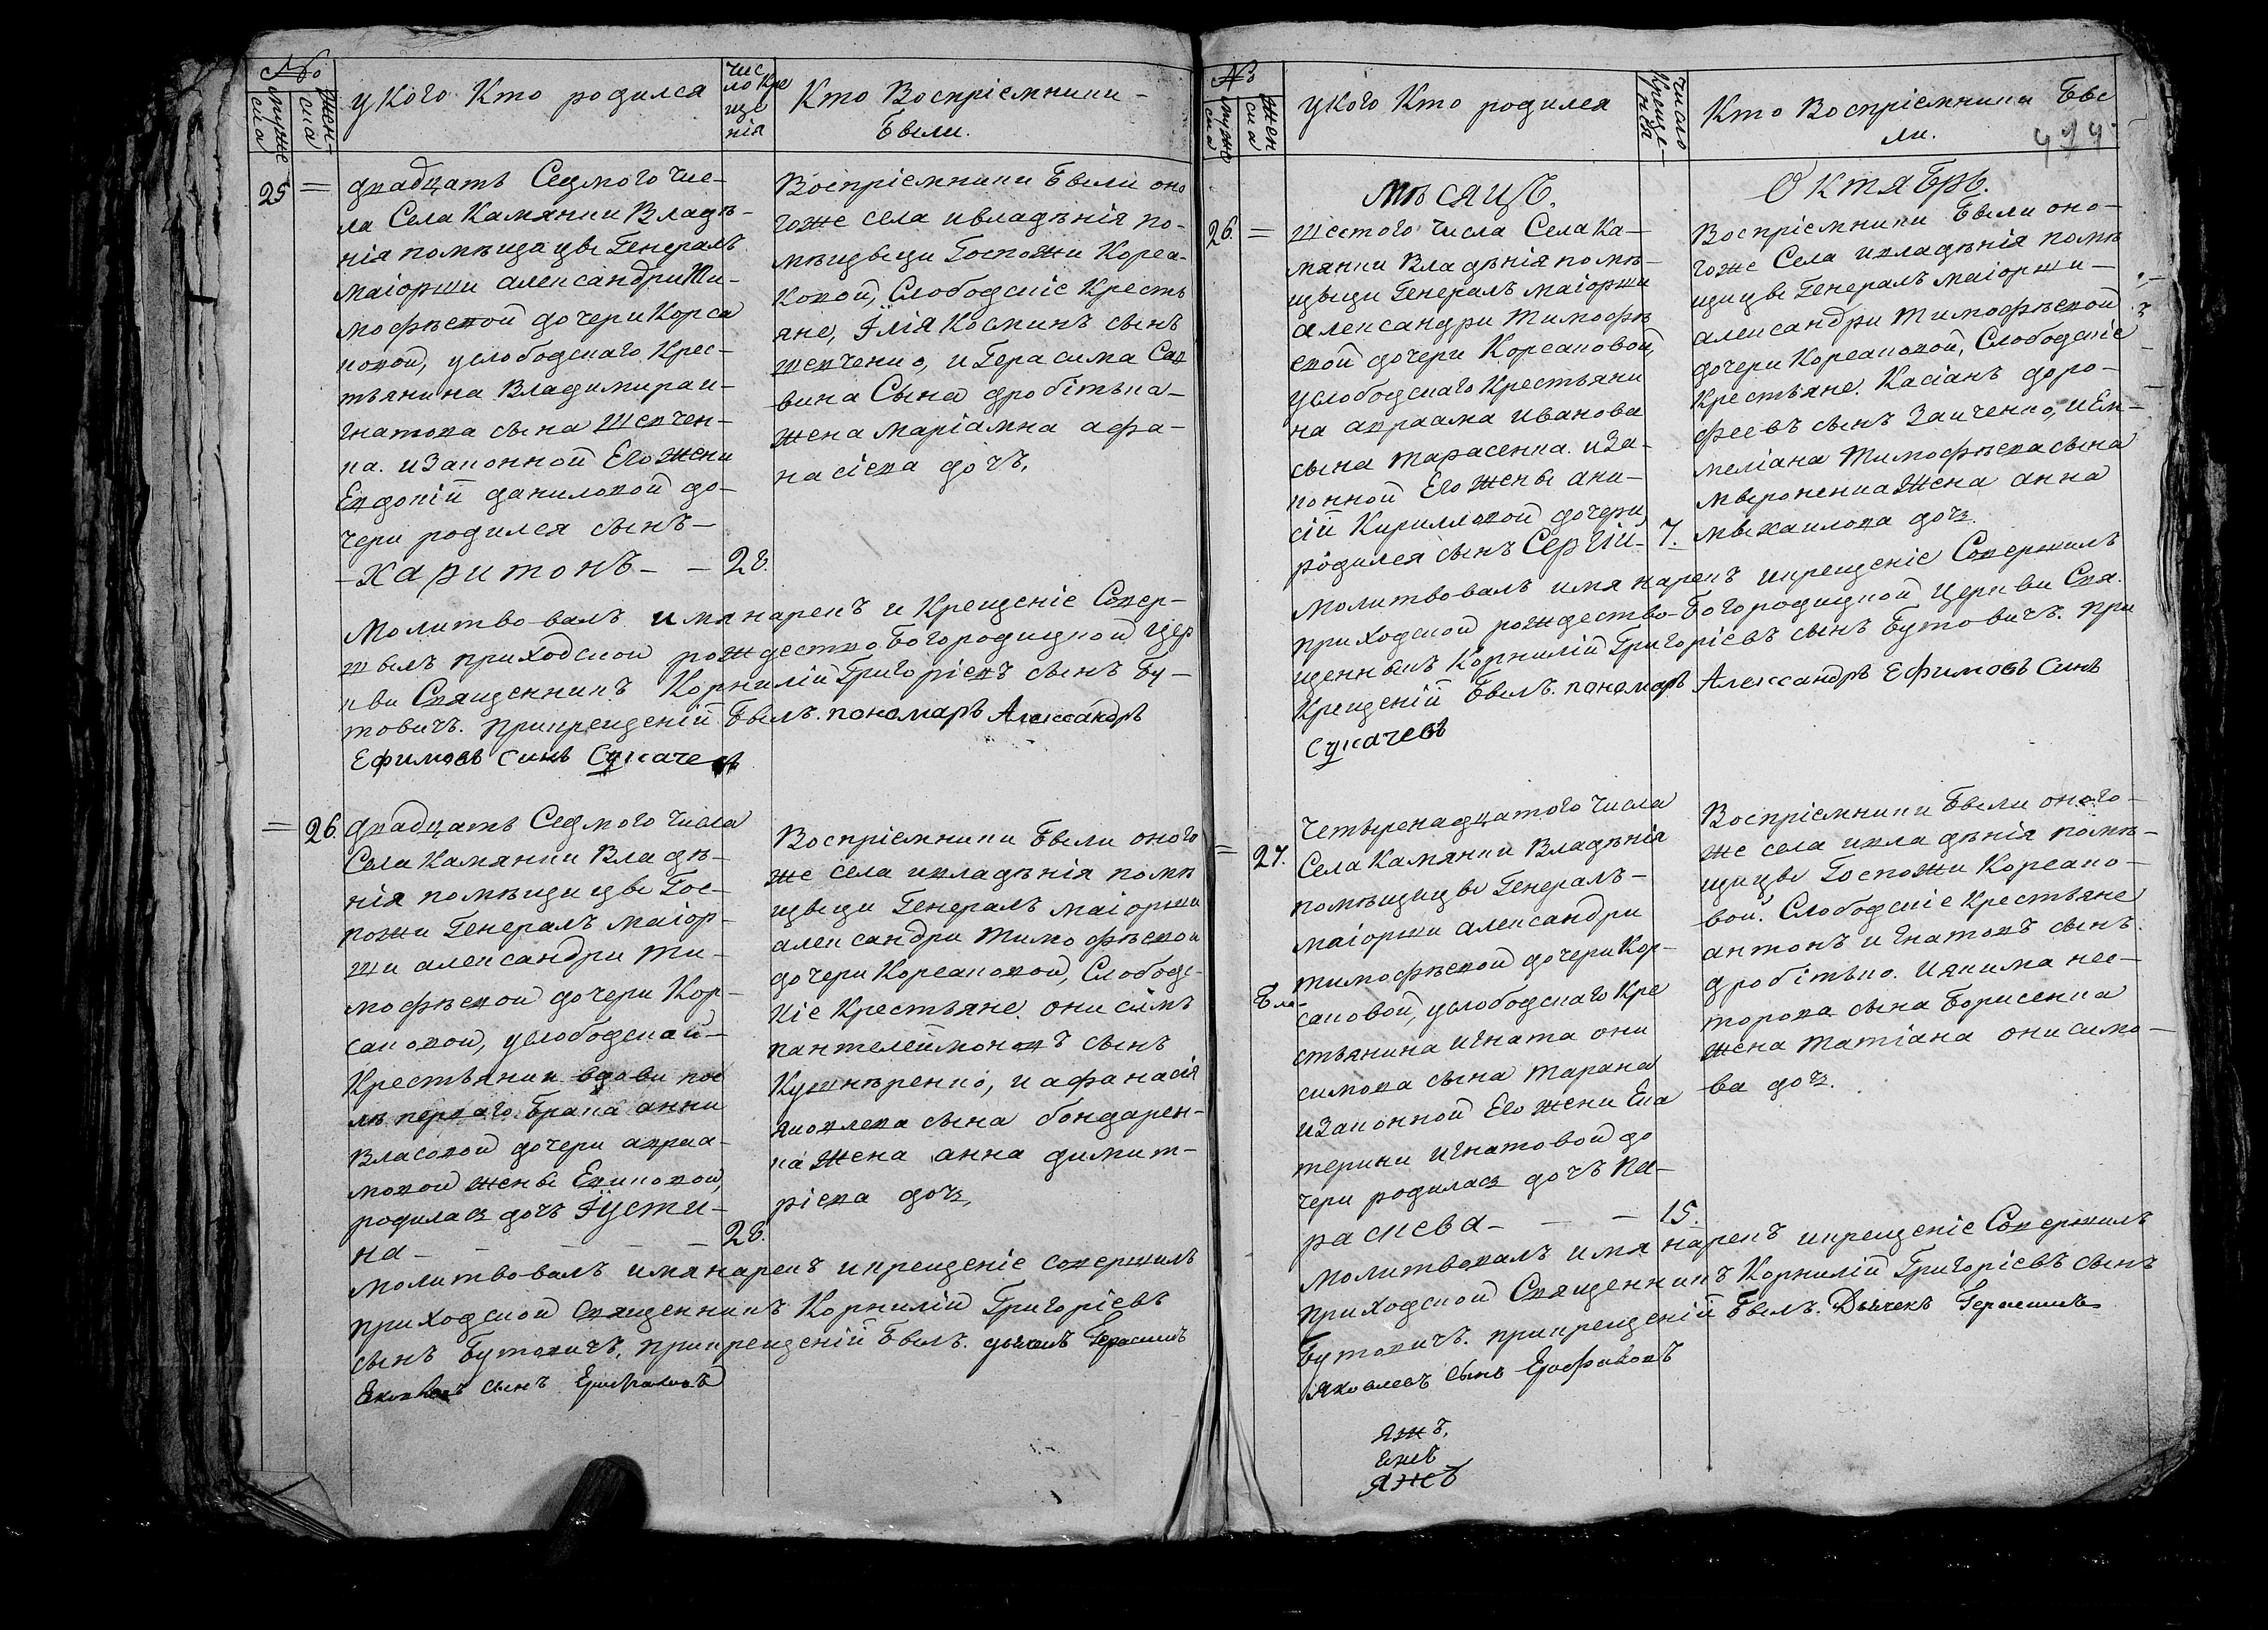 №
мужеска
женска
у Кого Кто родился
число Крещенія
Кто Воспріемники
были.
25 =
двадцать Седмого чис-
ла Села Камянки Владѣ-
нія помѣщицы Генералъ
маіорши александри Ти-
мофѣевой дочери Корса
ковой, услободскаго Крес-
тьянина Владимира и-
гнатова сына Шевчен-
ка. и законной Его жени
Евдокій даниловой до-
чери родился сынъ-
-Харитонъ- - 28.
Воспріемники были оно
гоже села ивладѣнія по-
мѣщыци Госпожи Корса-
ковой, Слободскіе Кресть
яне, Ілія Косминъ сынъ
шевченко, и Герасима Сав
вина Сына дробітька-
жена маріамна афа-
насіева дочъ,
Молитвовалъ имя нарекъ и Крещеніе Совер-
шилъ приходской рождество Богородицкой Цер
кви Священникъ Корнилій Григоріевъ сынъ Бу-
товичъ. прикрещеній былъ. пономарь Александръ
Ефимовъ синъ Сукачевъ
= 26.
двадцать Седмого числа
Села Камянки Владѣ-
нія помѣщицы Гос-
пожи Генералъ маіор-
ши александри Ти-
мофѣевой дочери Кор-
саковой, услободской-
Крестьянки вдови пос
лѣ перваго брака анни
Власовой дочери авраа-
мовой жены
родилась дочъ Іусти-
на- - - - - 28.
Воспріемники были оного
же села ивладѣнія помѣ
щыци Генералъ маіорши
александри тимофѣевой
дочери Корсаковой, Слободс-
кіе Крестьяне. онисимъ
пантелеймоновъ сынъ
Кушнѣренко, и афанасія
яковлева сына бондарен-
ка жена анна димит-
ріева дочъ,
Молитвовалъ имя нарекъ икрещеніе совершилъ
приходской священникъ Корнилій Григоріевъ
сынъ Бутовичъ, прикрещеній былъ. дьячекъ Герасимъ
сынъ Ерофаловъ
№
мужеска
женска
у Кого Кто родился
Число Крещенія
Кто Воспріемники Бы
ли.
мѣсяцъ.
Октябрь.
26. =
шестого числа Села Ка-
мянки Владѣнія помѣ-
щыци Генералъ маіорши
александри тимофѣ
евой дочери Корсаковой,
услободскаго Крестьяни
на авраама иванова
сына тарасенка. и за-
конной Его жены ани-
сій Кирилловой дочери
родился сынъ Сергій- 7.
Воспріемники были оно-
гоже Села ивладѣнія помѣ
щицы Генералъ маіорши-
александри тимофѣевой
дочери Корсаковой, Слободскіе
Крестьяне. Касіанъ доро-
феевъ сынъ Заиченко, и Ем-
меліана тимофѣева сына
мыроненка жена анна
мыхаилова дочъ.
Молитвовалъ имя нарекъ икрещеніе Совершилъ
приходской рождество-Богородицкой Церкви Свя.
щенникъ Корнилій Григоріевъ сынъ Бутовичъ. при
Крещеній былъ. пономарь Александръ Ефимовъ Синъ
Сукачевъ
= 27.
Четыренадцатого числа
Села Камянки Владѣнія
помѣщицы Генералъ-
маіорши александри
тимофѣевой дочери Кор-
саковой, услободскаго Кре
стьянина игната они
симова сына тарана
изаконной Его жени Ека
терини игнатовой до
чери родилась дочъ Па-
раскева- - - 15.
Воспріемники были оного-
же села ивладѣнія помѣ-
щицы Госпожи Корсако-
вой. Слободскіе Крестьяне
антонъ игнатовъ сынъ.
дробітько. и якима нес-
торова сына Борисенка
жена татіана онисимо-
ва дочъ.
Молитвовалъ имя нарекъ икрещеніе Совершилъ
приходской Священникъ Корнилій Григоріевъ сынъ
Бутовичъ. прикрещеній былъ. Дьячекъ Герасимъ
Яковлевъ Сынъ Ерофаловъ